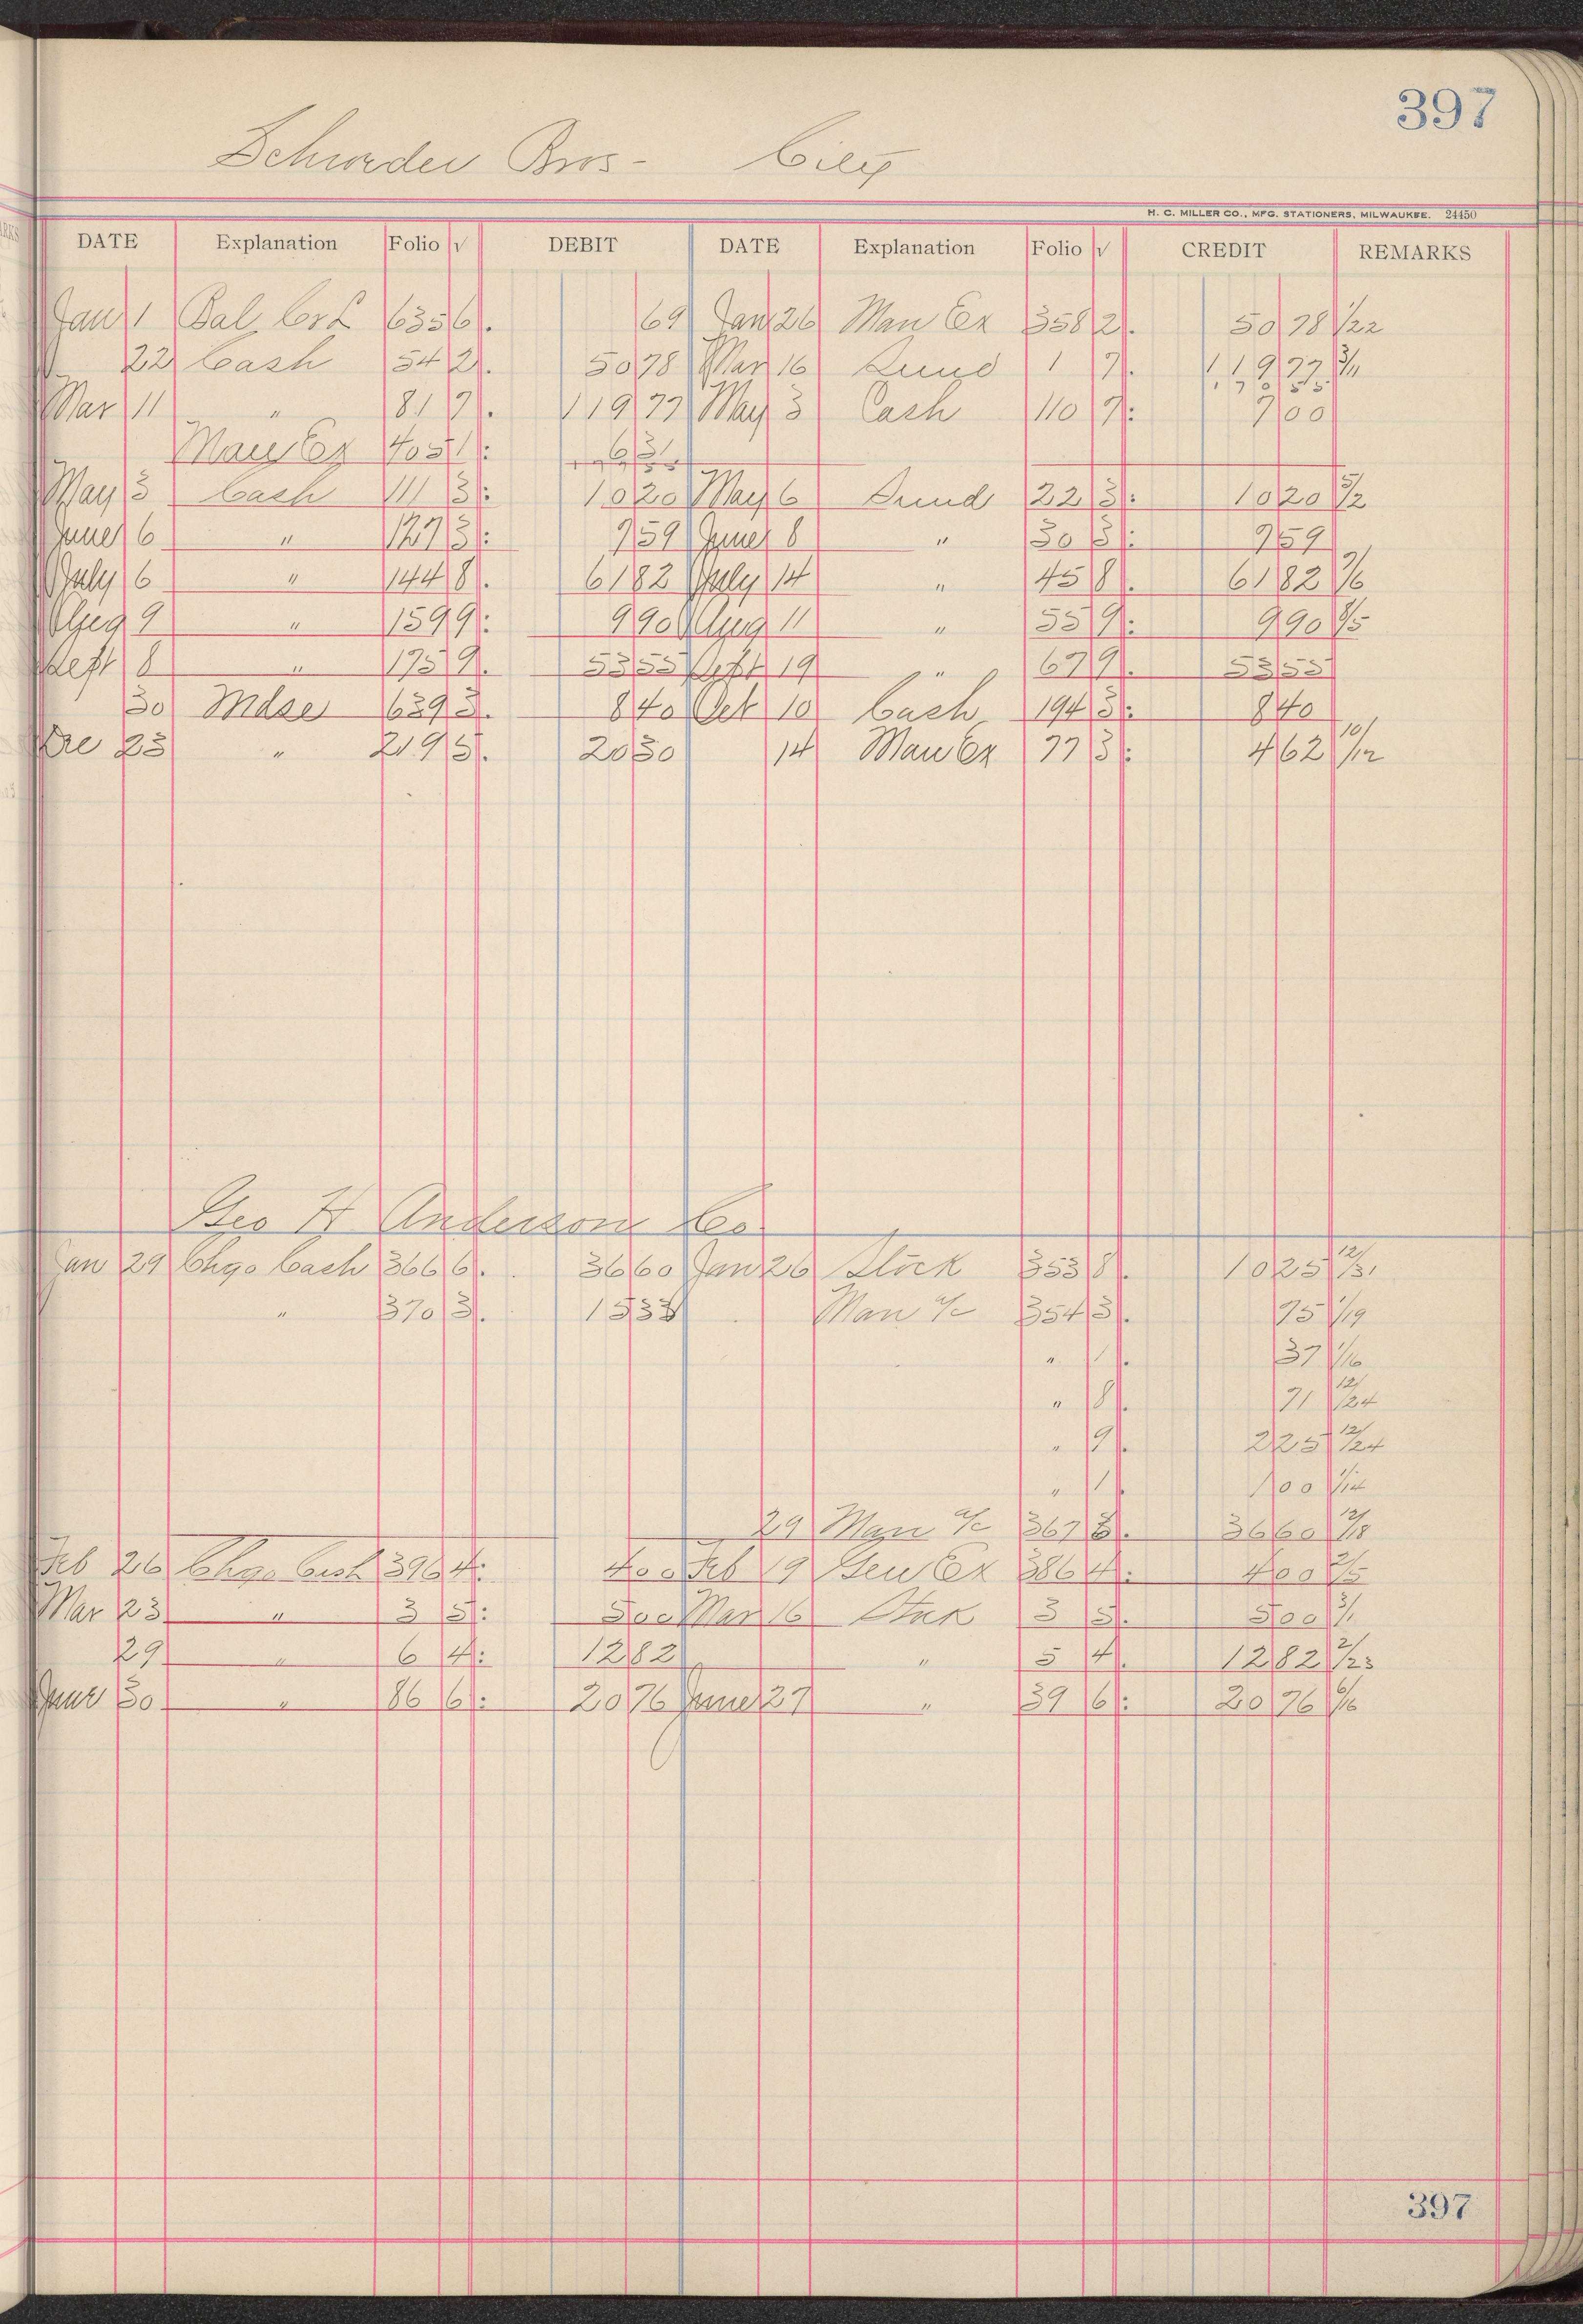 397
Schroeder Bros - City
H. C. MILLER CO., MFG. STATIONERS, MILWAUKEE. 24450
DATE Explanation Folio √ DEBIT DATE Explanation Folio √ CREDIT REMARKS
Jan 1 Bal 635 6 69 Jan 26 Man Ex 358 2 50 78 1/22
22 Cash 54 2 50 78 Mar 16 Sund 1 7 119 77 3/11
Mar 11 " 81 7 119 77 May 3 Cash 110 7 7 00
Man Ex 405 1 6 31
May 3 Cash 111 3 10 20 May 6 Sund 22 3 10 20 5/2
June 6 " 127 3 7 59 June 8 " 30 3 7 59
July 6 " 144 8 61 82 July 14 " 45 8 61 82 7/6
Aug 9 " 159 9 9 90 Aug 11 " 55 9 9 90 8/5
Sept 8 " 175 9 53 55 Sept 19 " 67 9 53 55
30 Mdse 639 3 8 40 Oct 10 Cash 194 3 8 40
23 " 219 5 20 30 14 Man Ex 77 3 4 62 10/12
Geo H Anderson Co
Jan 29 Chgo Cash 366 6 36 60 Jan 26 Stock 353 8 10 25 12/31
" 370 3 15 33 Man a/c 354 3 75 1/19
" 1 37 1/16
" 8 71 12/24
" 9 2 25 12/24
" 1 1 00 1/14
29 Man a/c 367 36 60 12/18
Feb 26 Chgo Cash 396 4 4 00 Feb 19 Gen Ex 386 4 4 00 2/5
Mar 23 " 3 5 5 00 Mar 16 Stock 3 5 5 00 3/1
29 " 6 4 12 82 " 5 4 12 82 2/23
June 30 " 86 6 20 76 June 27 " 39 6 20 76 6/16
397